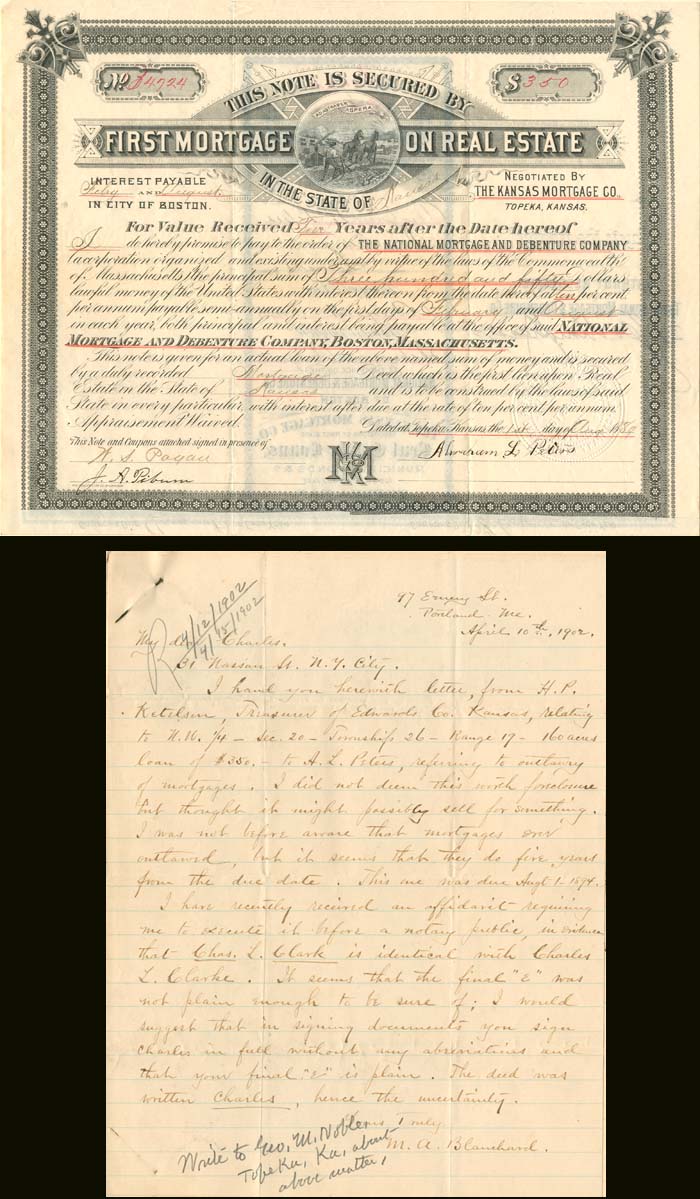 No. 14724
$350
THIS NOTE IS SECURED BY
TOPEKA
FIRST MORTGAGE ON REAL ESTATE
IN THE STATE OF Kansas
INTEREST PAYABLE
Feby AND August
IN CITY OF BOSTON.
NEGOTIATED BY
THE KANSAS MORTGAGE CO.,
TOPEKA, KANSAS.
For Value Received Five Years after the Date hereof
I do hereby promise to pay to the order of THE NATIONAL MORTGAGE AND DEBENTURE COMPANY
(a corporation organized and existing under and by virtue of the laws of the Commonwealth
of Massachusetts) the principal sum of Three hundred and fifty Dollars
lawful money of the United States with interest thereon from the date hereof at ten per cent.
per annum payable semi-annually on the first days of February and August
in each year, both principal and interest being payable at the office of said NATIONAL
MORTGAGE AND DEBENTURE COMPANY, BOSTON, MASSACHUSETTS.
This note is given for an actual loan of the above named sum of money and is secured
by a duly recorded Mortgage Deed, which is the first lien upon Real
Estate in the State of Kansas and is to be construed by the laws of said
State in every particular, with interest after due at the rate of ten per cent per annum.
Appraisement Waived. Dated at Topeka Kansas the 1st day of Aug
This Note and Coupons attached signed in presence of
W. S.
J. A.
Abraham L Peters
KMCo
97 Emery St.
Portland Me.
April 10th, 1902.
4/12/1902
4/15/1902
R
My dear Charles.
31 Nassau St. N.Y. City.
I hand you herewith letter, from H. P.
Ketelsen, Treasurer of Edwards Co. Kansas, relating
to N.W. 1/4 - Sec. 20 - Township 26 - Range 17 - 160 acres
loan of $350. - to A. L. Peters, referring to outlawry
of mortgages. I did not deem this worth foreclosure
but thought it might possibly sell for something.
I was not before aware that mortgages ever
outlawed, but it seems that they do five years
from the due date. This one was due Augt 1 - 1894.
I have recently received an affidavit requiring
me to execute it before a notary public, in evidence
that Chas. L. Clark is identical with Charles
L. Clarke. It seems that the final "E" was
not plain enough to be sure of; I would
suggest that in signing documents you sign
Charles in full without any abreviations and
that your final "E" is plain. The deed was
written Charles, hence the uncertainty.
Yours Truly
M. A. Blanchard.
Write to Geo. M. Noble
Topeka, Ka, about
above matter,